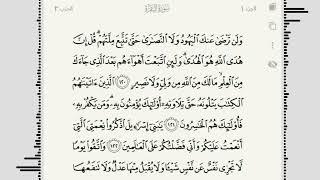 الجزء ١ سورة البقرة الحزب ٢
وَلَن تَرْضَىٰ عَنكَ الْيَهُودُ وَلَا النَّصَارَىٰ حَتَّىٰ تَتَّبِعَ مِلَّتَهُمْ ۗ قُلْ إِنَّ
هُدَى اللَّهِ هُوَ الْهُدَىٰ ۗ وَلَئِنِ اتَّبَعْتَ أَهْوَاءَهُم بَعْدَ الَّذِي جَاءَكَ
مِنَ الْعِلْمِ ۙ مَا لَكَ مِنَ اللَّهِ مِن وَلِيٍّ وَلَا نَصِيرٍ ١٢٠ الَّذِينَ آتَيْنَاهُمُ
الْكِتَابَ يَتْلُونَهُ حَقَّ تِلَاوَتِهِ أُولَٰئِكَ يُؤْمِنُونَ بِهِ ۗ وَمَن يَكْفُرْ بِهِ
فَأُولَٰئِكَ هُمُ الْخَاسِرُونَ ١٢١ يَا بَنِي إِسْرَائِيلَ اذْكُرُوا نِعْمَتِيَ الَّتِي
أَنْعَمْتُ عَلَيْكُمْ وَأَنِّي فَضَّلْتُكُمْ عَلَى الْعَالَمِينَ ١٢٢ وَاتَّقُوا يَوْمًا
لَّا تَجْزِي نَفْسٌ عَن نَّفْسٍ شَيْئًا وَلَا يُقْبَلُ مِنْهَا عَدْلٌ وَلَا تَنفَعُهَا